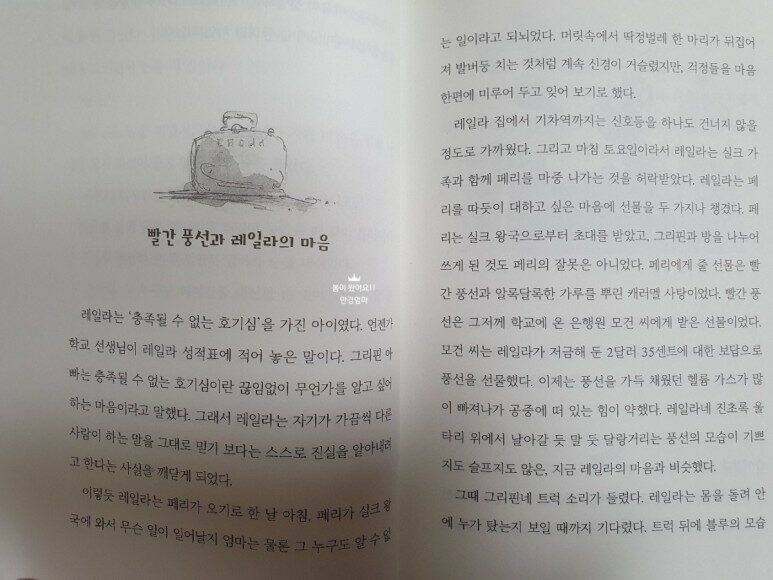 빨간 풍선과 레일라의 마음
봄이 왔어요!!
안경엄마
레일라는 ‘충족될 수 없는 호기심’을 가진 아이였다. 언젠가
학교 선생님이 레일라 성적표에 적어 놓은 말이다. 그리핀 아
빠는 충족될 수 없는 호기심이란 끊임없이 무언가를 알고 싶어
하는 마음이라고 말했다. 그래서 레일라는 자기가 가끔씩 다른
사람이 하는 말을 그대로 믿기 보다는 스스로 진실을 알아내려
고 한다는 사실을 깨닫게 되었다.
이렇듯 레일라는 페리가 오기로 한 날 아침, 페리가 실크 왕
국에 와서 무슨 일이 일어날지 엄마는 물론 그 누구도 알 수 없
는 일이라고 되뇌었다. 머릿속에서 딱정벌레 한 마리가 뒤집어
져 발버둥 치는 것처럼 계속 신경이 거슬렸지만, 걱정들을 마음
한편에 미루어 두고 잊어 보기로 했다.
레일라 집에서 기차역까지는 신호등을 하나도 건너지 않을
정도로 가까웠다. 그리고 마침 토요일이라서 레일라는 실크 가
족과 함께 페리를 마중 나가는 것을 허락받았다. 레일라는 페
리를 따듯이 대하고 싶은 마음에 선물을 두 가지나 챙겼다. 페
리는 실크 왕국으로부터 초대를 받았고, 그리핀과 방을 나누어
쓰게 된 것도 페리의 잘못은 아니었다. 페리에게 줄 선물은 빨
간 풍선과 알록달록한 가루를 뿌린 캐러멜 사탕이었다. 빨간 풍
선은 그저께 학교에 온 은행원 모건 씨에게 받은 선물이었다.
모건 씨는 레일라가 저금해 둔 2달러 35센트에 대한 보답으로
풍선을 선물했다. 이제는 풍선을 가득 채웠던 헬륨 가스가 많
이 빠져나가 공중에 떠 있는 힘이 약했다. 레일라네 진초록 울
타리 위에서 날아갈 듯 말 듯 달랑거리는 풍선의 모습이 기쁘
지도 슬프지도 않은, 지금 레일라의 마음과 비슷했다.
그때 그리핀네 트럭 소리가 들렸다. 레일라는 몸을 돌려 안
에 누가 탔는지 보일 때까지 기다렸다. 트럭 뒤에 블루의 모습